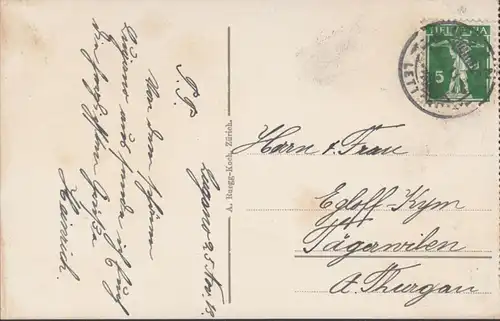 P. P.
Lugano 25. Nov. 13.
Von dem schönen
Lugano aus sende ich Euch
die herzlichsten Grüße
Heinrich.
A. Ruegg-Koch, Zürich.
HELVETIA
5
Herrn & Frau
Egloff-Kym
Tägerwilen
Thurgau